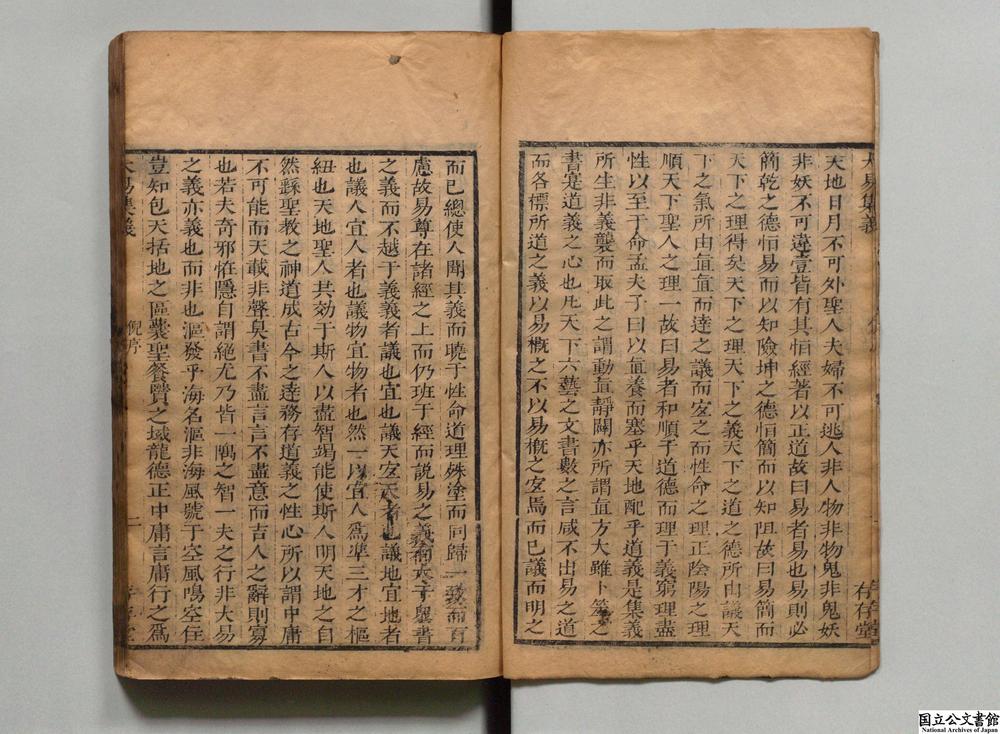 大易集義
存存堂
天地日月不可外聖人夫婦不可逃人非人物非物鬼非鬼妖
非妖不可違壹皆有其恒經著以正道故曰易者易也易則必
簡乾之德恒易而以知險坤之德恒簡而以知阻故曰易簡而
天下之理得矣天下之理天下之義天下之道之德所由議天
下之氣所由宜宜而達之議而宜之而性命之理正陰陽之理
順天下聖人之理一故曰易者和順于道德而理于義窮理盡
性以至于命孟夫子曰以直養而塞乎天地配乎道義是集義
所生非義襲而取此之謂動直靜闢亦所謂直方大雖卜筮之
書寔道義之心也凡天下六藝之文書數之言咸不出易之道
而各標所道之義以易槪之不以易槪之宜焉而已議而明之
而已總使人聞其義而曉于性命道理殊塗而同歸一致而百
慮故易尊在諸經之上而仍班于經而說易之義
之義而不越于義義者議也宜也議天宜天者也議地宜地者
也議人宜人者也議物宜物者也然一以宜人爲準三才之樞
紐也天地聖人共效于斯人以盡智竭能使斯人明天地之自
然繇聖教之神道成古今之達務存道義之性心所以謂中庸
不可能而天載非聲臭書不盡言言不盡意而吉人之辭則寡
也若夫奇邪恠隱自謂絶尤乃皆一隅之智一夫之行非大易
之義亦義也而非也漚發乎海名漚非海風號于空風鳴空在
豈知包天括地之區囊聖餐賢之域龍德正中庸言庸行之爲
大易集義
倪序
二
存存堂
国立公文書館
National Archives of Japan